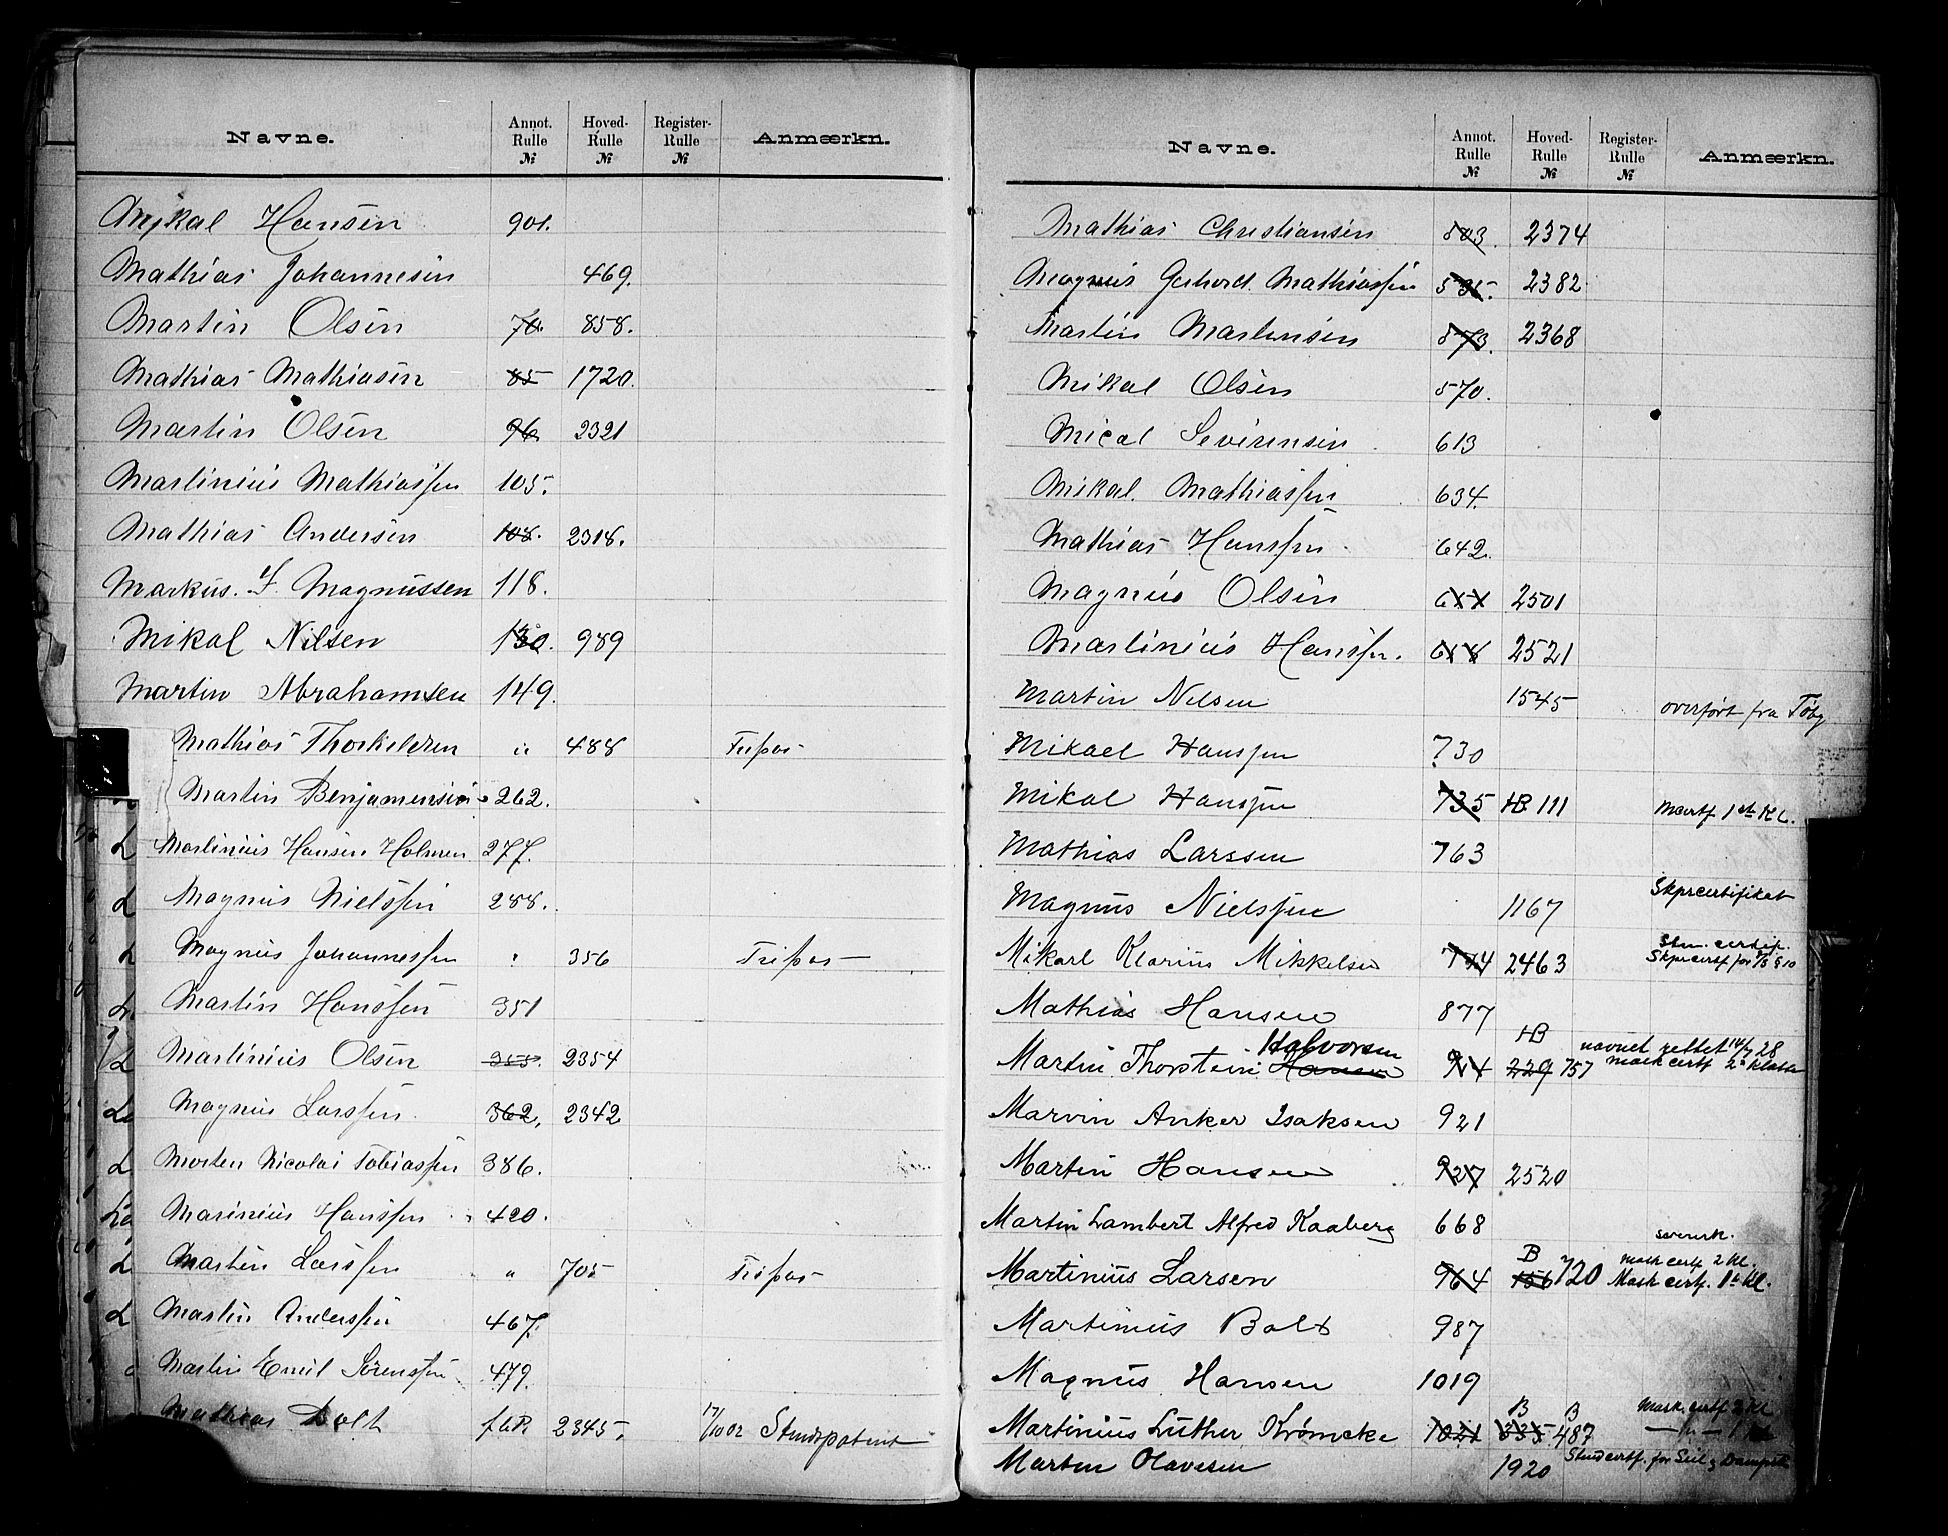 Navne. Annot. Rulle № Hoved-Rulle № Register-Rulle № Anmærkn.
Mikal Hansen 901.
Mathias Johannesen 469.
Martin Olsen 70. 858.
Mathias Mathiasen 85 1720.
Martin Olsen 96. 2321
Martinius Mathiassen 105.
Mathias Andersen 108. 2318.
Markus. I. Magnussen 118.
Mikal Nilsen 130. 989
Martin Abrahamsen 149.
Mathias Thorkildsen " 488 Fripas
Martin Benjaminsen 262.
Martinius Hansen Holmen 277.
Magnus Nielssen 288.
Magnus Johannessen " 356 Fripas
Martin Hanssen 351
Martinius Olsen 355. 2354
Magnus Larssen 362. 2342
Morten Nicolai Tobiassen 386.
Marinius Hanssen 420.
Martin Larssen " 705 Fripas
Martin Anderssen 467.
Martin Emil Sørenssen 479.
Mathias Bolt 2345. 17/10 02 Styrmdspatent
Navne. Annot. Rulle № Hoved-Rulle № Register-Rulle № Anmærkn.
Mathias Christiansen 503. 2374
Magnus Gerhard Mathiassen 535. 2382
Martin Martinsen 573. 2368
Mikal Olsen 570.
Mical Severinsen 613
Mikal Mathiassen 634.
Mathias Hanssen 642.
Magnus Olsen 2501
Martinius Hanssen. 658 2521
Martin Nilsen 1545 overført fra Tsbg
Mikael Hanssen 730
Mikal Hanssen 735 HB 111 Mcertf 1ste Kl.
Mathias Larssen 763
Magnus Nielssen 1167 Skprcertifikat
Mikarl Klarius Mikkelsen 774 2463 Stm. certif.
Skprcertf for
Mathias Hansen 877
HB navnet rettet 14/7 28
Martin Thorstein Hansen Halvorsen 914 229 757 mask certf 2 klasse
Marvin Anker Isaksen 921
Martin Hansen 927 2520
Martin Lambert Alfred Kaaberg 668
B mask certf 2 Kl.
Martinius Larsen 964 156 720 Mask certf. 1ste Kl.
Martinius Bolt 987
Magnus Hansen 1019
B B Mask. certf 2 Kl
Martinius Luther Krømcke 1021 335 487 — " — 1 Kl
Martin Olavesen 1920 Stmdcertf. for Seil &